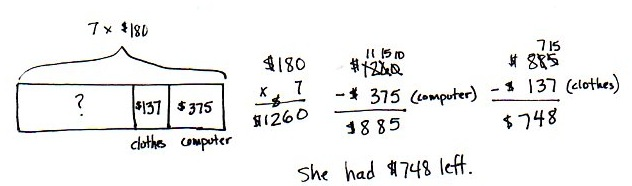 7 x $180
? $137 $375
clothes computer
$180
x 7
$1260
11 15 10
$1260
- $ 375 (computer)
$885
7 15
$ 885
- $ 137 (clothes)
$748
She had $748 left.